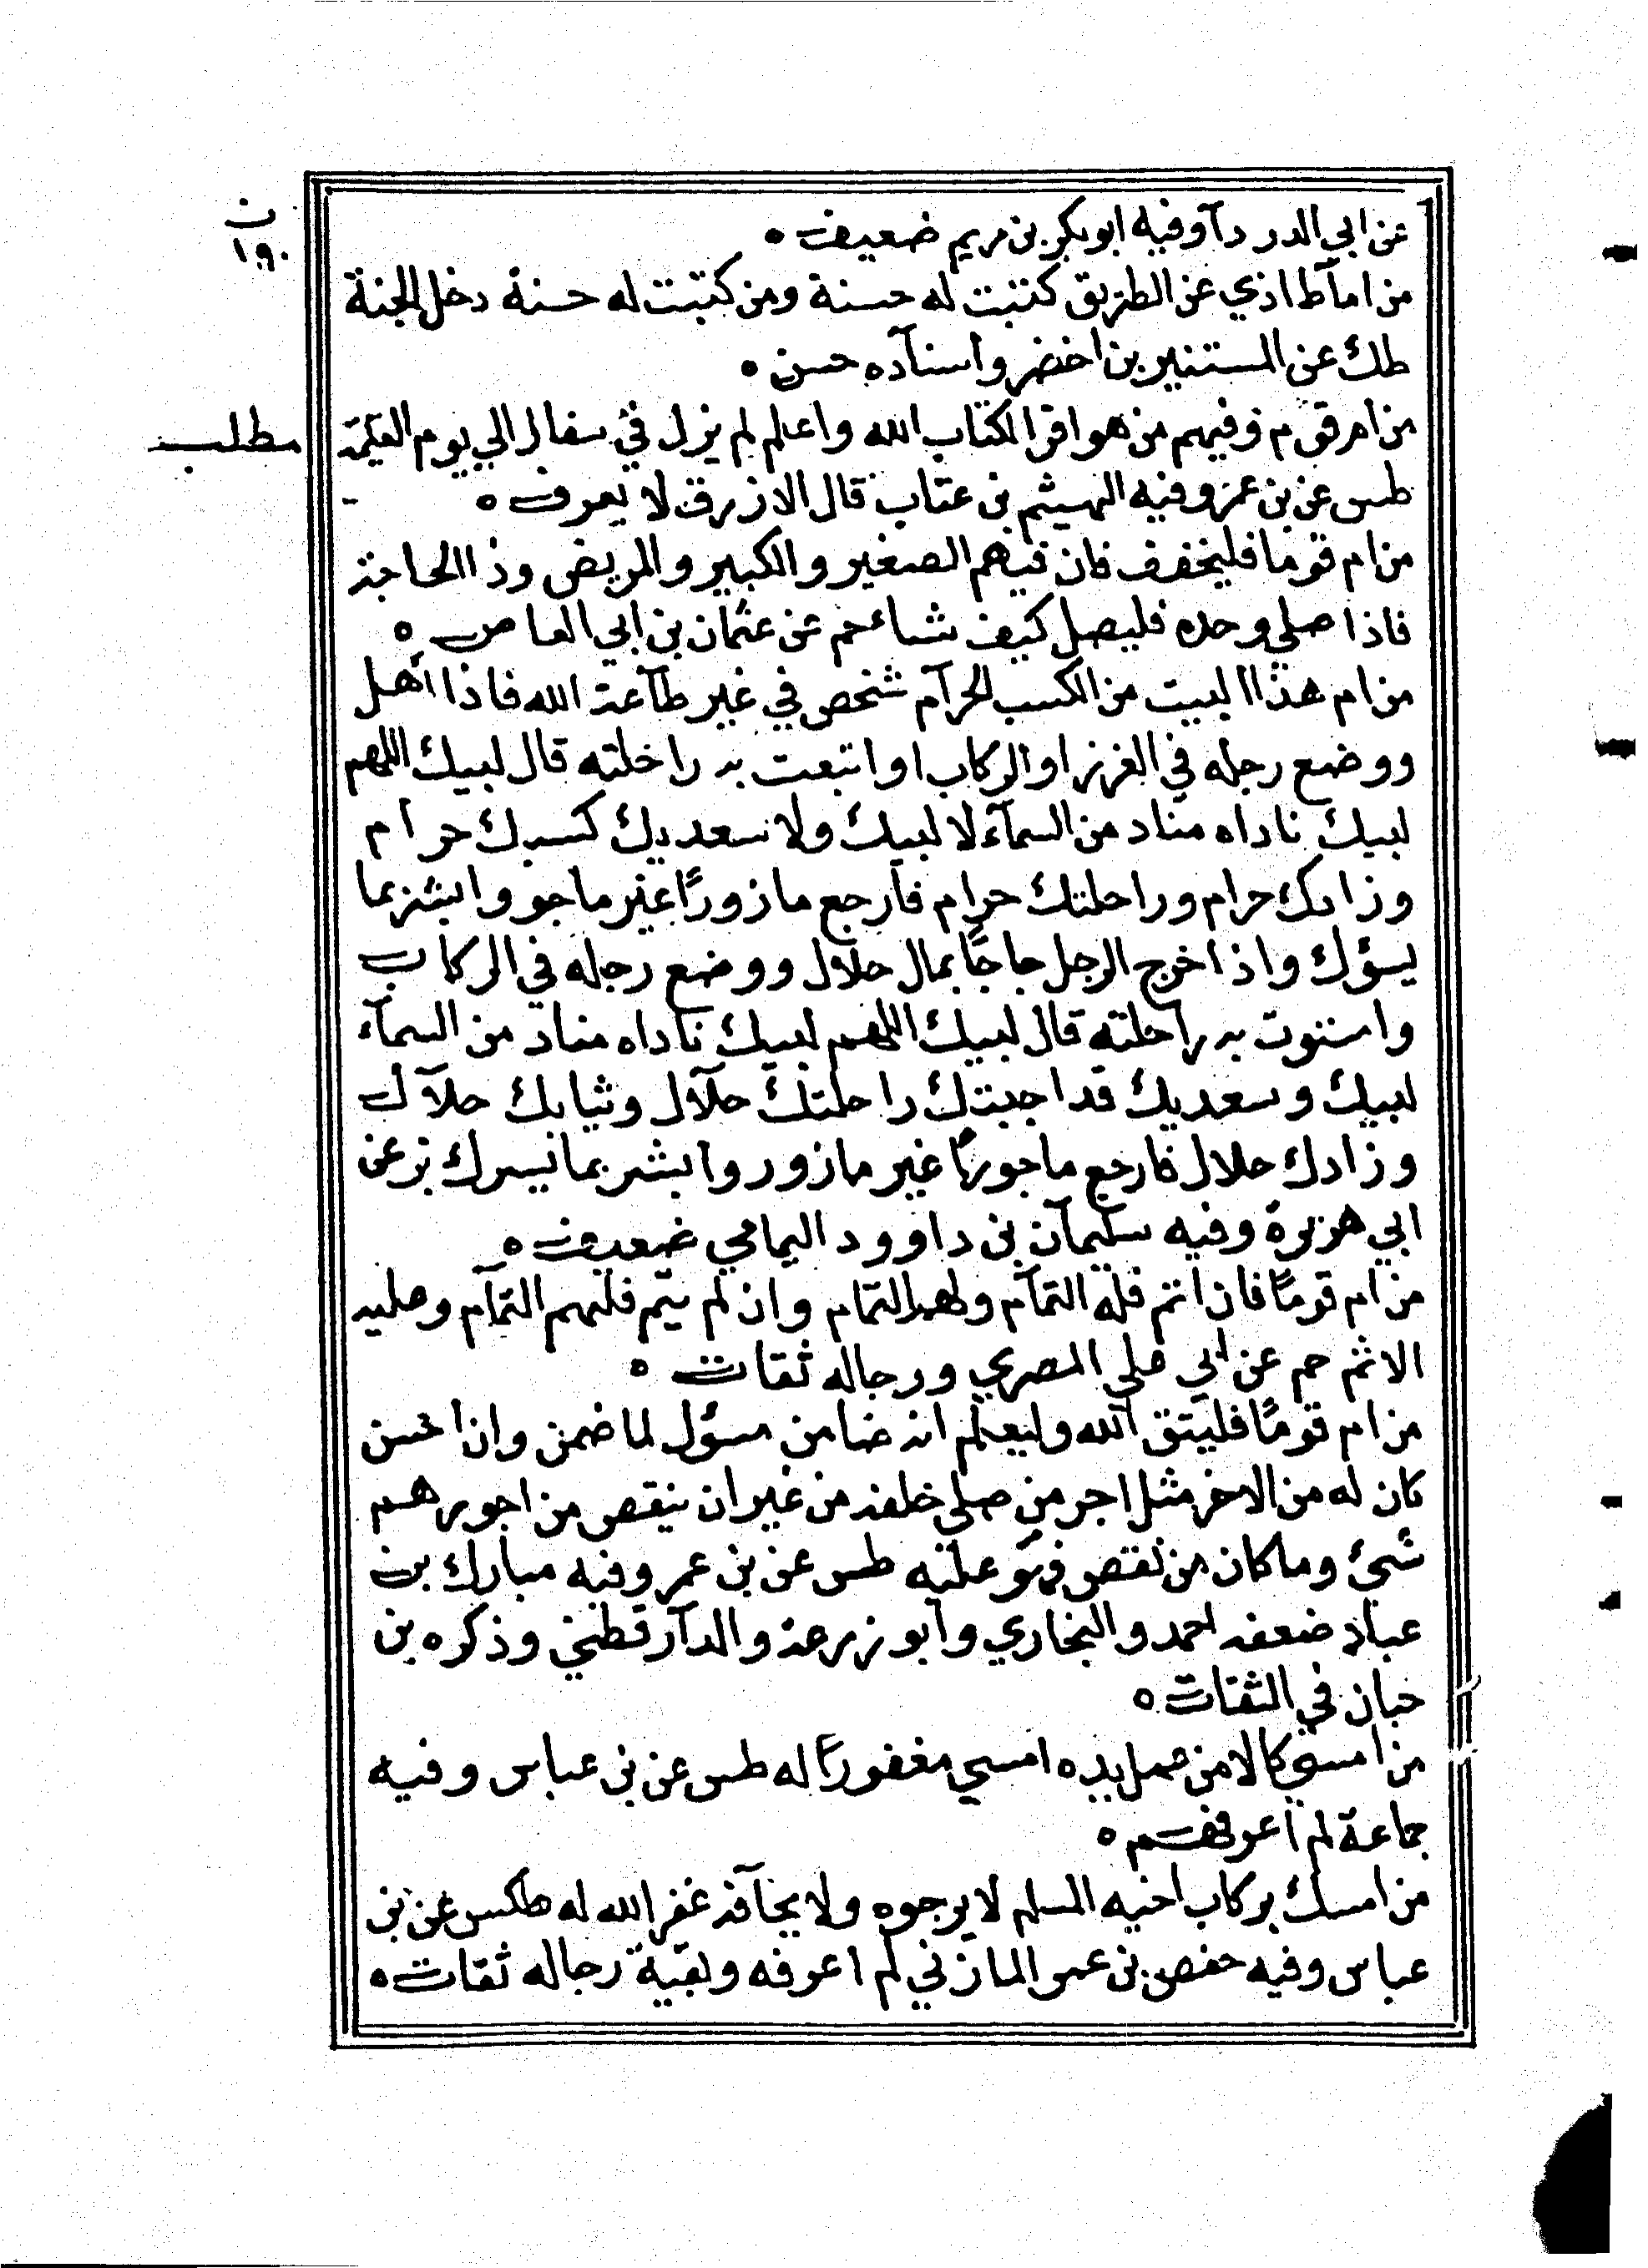 ن
١٩٠
عن ابي الدردآ وفيه ابوبكر بن مريم ضعيف ه
من اماط اذي عن الطريق كتبت له حسنة ومن كتبت له حسنة دخل الجنة
طك عن المستنير بن اخضر واسناده حسن ه
مطلب
من ام قوم وفيهم من هو اقرا لكتاب الله واعلم لم يزل في سفال الي يوم القيمة
طس عن بن عمر وفيه الهيثم بن عتاب قال الازرق لا يعرف ه
من ام قوما فليخفف فان فيهم الصغير والكبير والمريض وذا الحاجة
فاذا صلي وحده فليصل كيف شاء حم عن عثمان بن ابي العاص ه
من ام هذا البيت من الكسب الحرآم شخص في غير طآعة الله فاذا اهل
ووضع رجله في الغرز او الركاب او اتبعت به راحلته قال لبيك اللهم
لبيك ناداه مناد من السمآء لا لبيك ولا سعديك كسبك حرام
وزادك حرام وراحلتك حرام فارجع مازورًا غير ماجور وابشر بما
يسؤك واذا خرج الرجل حاجًا بمال حلال ووضع رجله في الركاب
واستوت به راحلته قال لبيك اللهم لبيك ناداه مناد من السمآء
لبيك وسعديك قد اجبتك راحلتك حلآل وثيابك حلآل
وزادك حلال فارجع ماجورًا غير مازور وابشر بما يسرك بز عن
ابي هريرة وفيه سليمان بن داوود اليمامي ضعيف ه
من ام قومًا فان اتم فله التمآم ولهم التمام وان لم يتم فلهم التمآم وعليه
الاثم حم عن ابي علي المصري ورجاله ثقات ه
من ام قومًا فليتق الله وليعلم انه ضامن مسؤل لما ضمن وان احسن
كان له من الاجر مثل اجر من صلي خلفه من غير ان ينقص من اجورهم
شيئ وما كان من نقص فهو عليه طس عن بن عمر وفيه مبارك بن
عباد ضعفه احمد والبخاري وابو زرعة والدآرقطني وذكره بن
حبان في الثقات ه
من امسي كالا من عمل يده امسي مغفورًا له طس عن بن عباس وفيه
جماعة لم اعرفهم ه
من امسك بركاب اخيه المسلم لا يرجوه ولا يخافه غفر الله له طكس عن بن
عباس وفيه حفص بن عمر المازني لم اعرفه وبقية رجاله ثقات ه